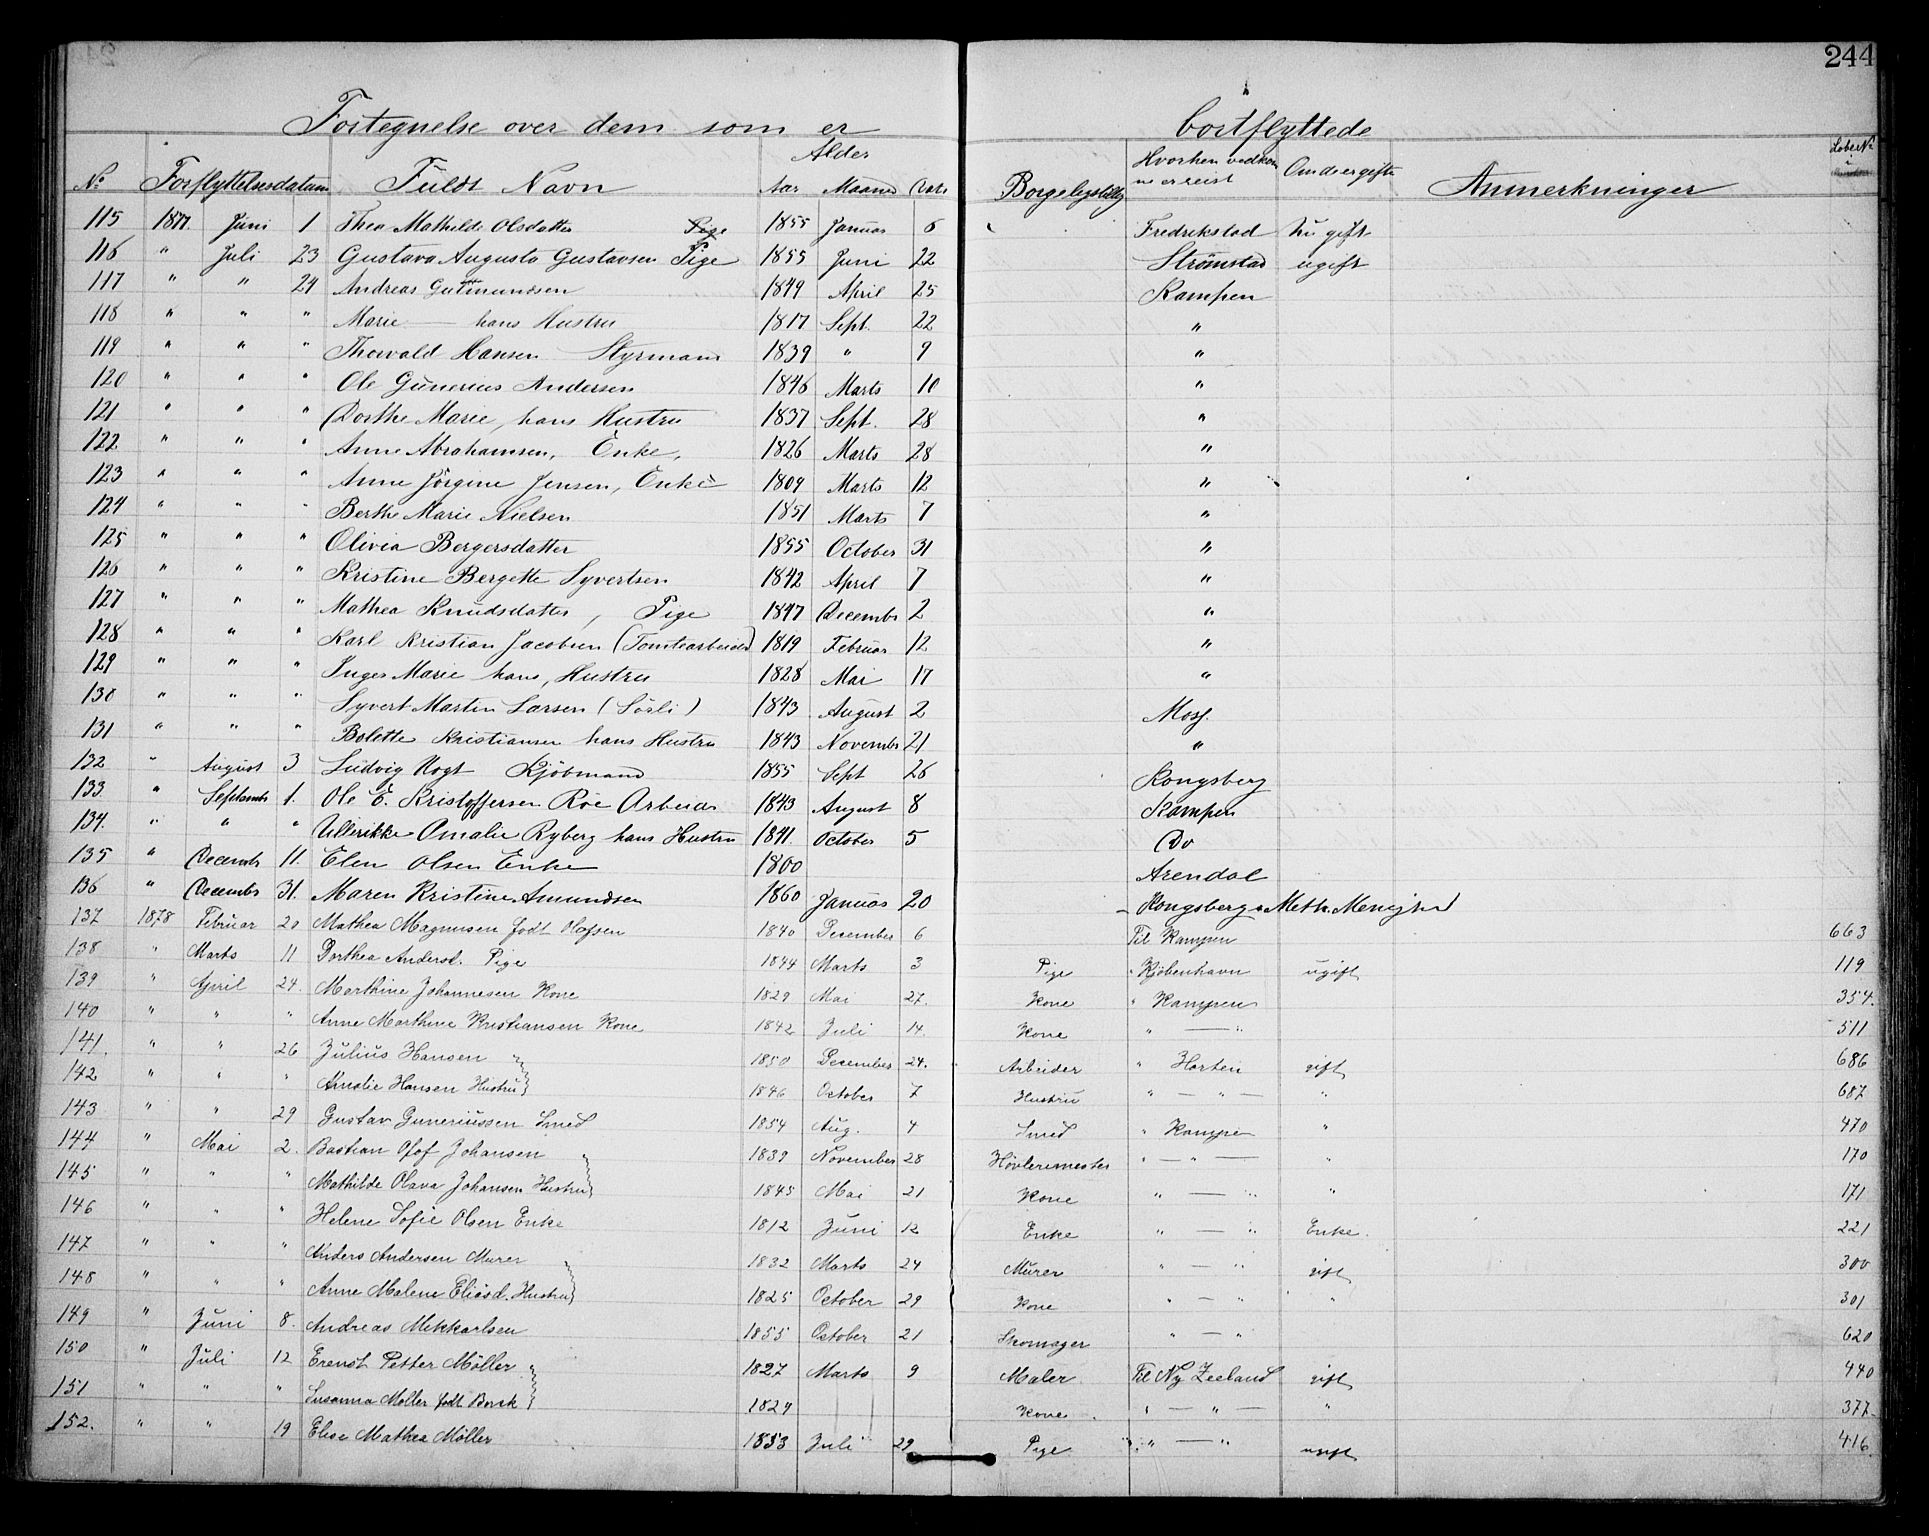 244
Fortegnelse over dem som er bortflyttede
Alder
No Forflyttelsesdatum Fuldt Navn Aar Maaned Dato Borgeligstillg Hvorhen vedkom Om de er gifte Anmerkninger Løbe No
ne er reist i
115 1877. Juni 1 Thea Mathilde Olsdatter Pige 1855 Januar 6 Fredrikstad Nu gift
116 " Juli 23 Gustava Augusta Gustavsen Pige 1855 Juni 22 Strømstad ugift
117 " " 24 Andreas Gutmundsen 1849 April 25 Kampen
118 " " " Marie — hans Hustru 1817 Sept. 22 "
119 " " " Thorvald Hansen Styrmann 1839 " 9 "
120 " " " Ole Gunerius Andersen 1846 Marts 10 "
121 " " " Dorthe Marie, hans Hustru 1837 Sept. 28 "
122 " " " Anne Abrahamsen, Enke, 1826 Marts 28 "
123 " " " Anne Jörgine Jensen, Enke 1809 Marts 12 "
124 " " " Berthe Marie Nielsen 1851 Marts 7 "
125 " " " Olivia Bergersdatter 1855 October 31 "
126 " " " Kristine Bergette Syvertsen 1842 April 7 "
127 " " " Mathea Knudsdatter, Pige 1847 Decembr 2 "
128 " " " Karl Kristian Jacobsen (Tomtearbeider) 1819 Februar 12 "
129 " " " Inger Marie hans, Hustru 1828 Mai 17 "
130 " " " Syvert Martin Larsen (Sörli) 1843 August 2 Moss.
131 " " " Bolette Kristiansen hans Hustru 1843 Novembr 21 "
132 " August 3 Ludvig Vogt Kjöbmand 1855 Sept 26 Kongsberg
133. " Septembr 1. Ole E. Kristoffersen Röe Arbeider 1843 August 8 Kampen
134. " " " Ullrikke Amalie Ryberg hans Hustru 1841. October 5 Do
135 " Decembr 11. Elen Olsen Enke 1800 Arendal
136 " Decembr 31. Maren Kristine Amundsen 1860 Januar 20 Kongsbergs Meth. Menighed
137 1878 Februar 20 Mathea Magnusen født Olafsen 1840 December 6 Til Kampen 663
138 " Marts 11 Dorthea Andersd. Pige 1844 Marts 3 Pige " Kjöbenhavn ugift 119
139 " April 24. Marthine Johannesen Kone 1829 Mai 27. Kone " Kampen 354.
140 " " " Anne Marthine Kristiansen Kone 1842 Juli 14. Kone " — " 511
141. " " 26 Julius Hansen 1850 December 24. Arbeider " Horten gift 686
142 " " " Amalie Hansen Hustru 1846 October 7 Hustru " — " — " 687
143 " " 29 Gustav Guneriussen Smed 1854 Aug. 4 Smed " Kampen " 470
144 " Mai 2. Bastian Olof Johansen 1839 November 28 Hövleremester " — " — " 170
145 " " " Mathilde Olava Johansen Hustru 1845 Mai 21 Kone " — " " 171
146 " " " Helene Sofie Olsen Enke 1812 Juni 12 Enke " — " Enke. 221
147 " " " Anders Andersen Murer 1832 Marts 24 Murer " — " gift 300
148 " " " Anne Malene Eliasd. Hustru 1825 October 29 Kone " — " " 301
149 " Juni 8. Andreas Mikkarlsen 1855 October 21 Skomager " — " 620
150 " Juli 12 Erenst Petter Möller 1827 Marts 9 Maler Til Ny Zeeland gift 440
151 " " " Susanna Möller født Borsk 1824 Kone " — " — " 377.
152. " " 19 Elise Mathea Möller 1853 Juli 29 Pige " " — " ugift 416